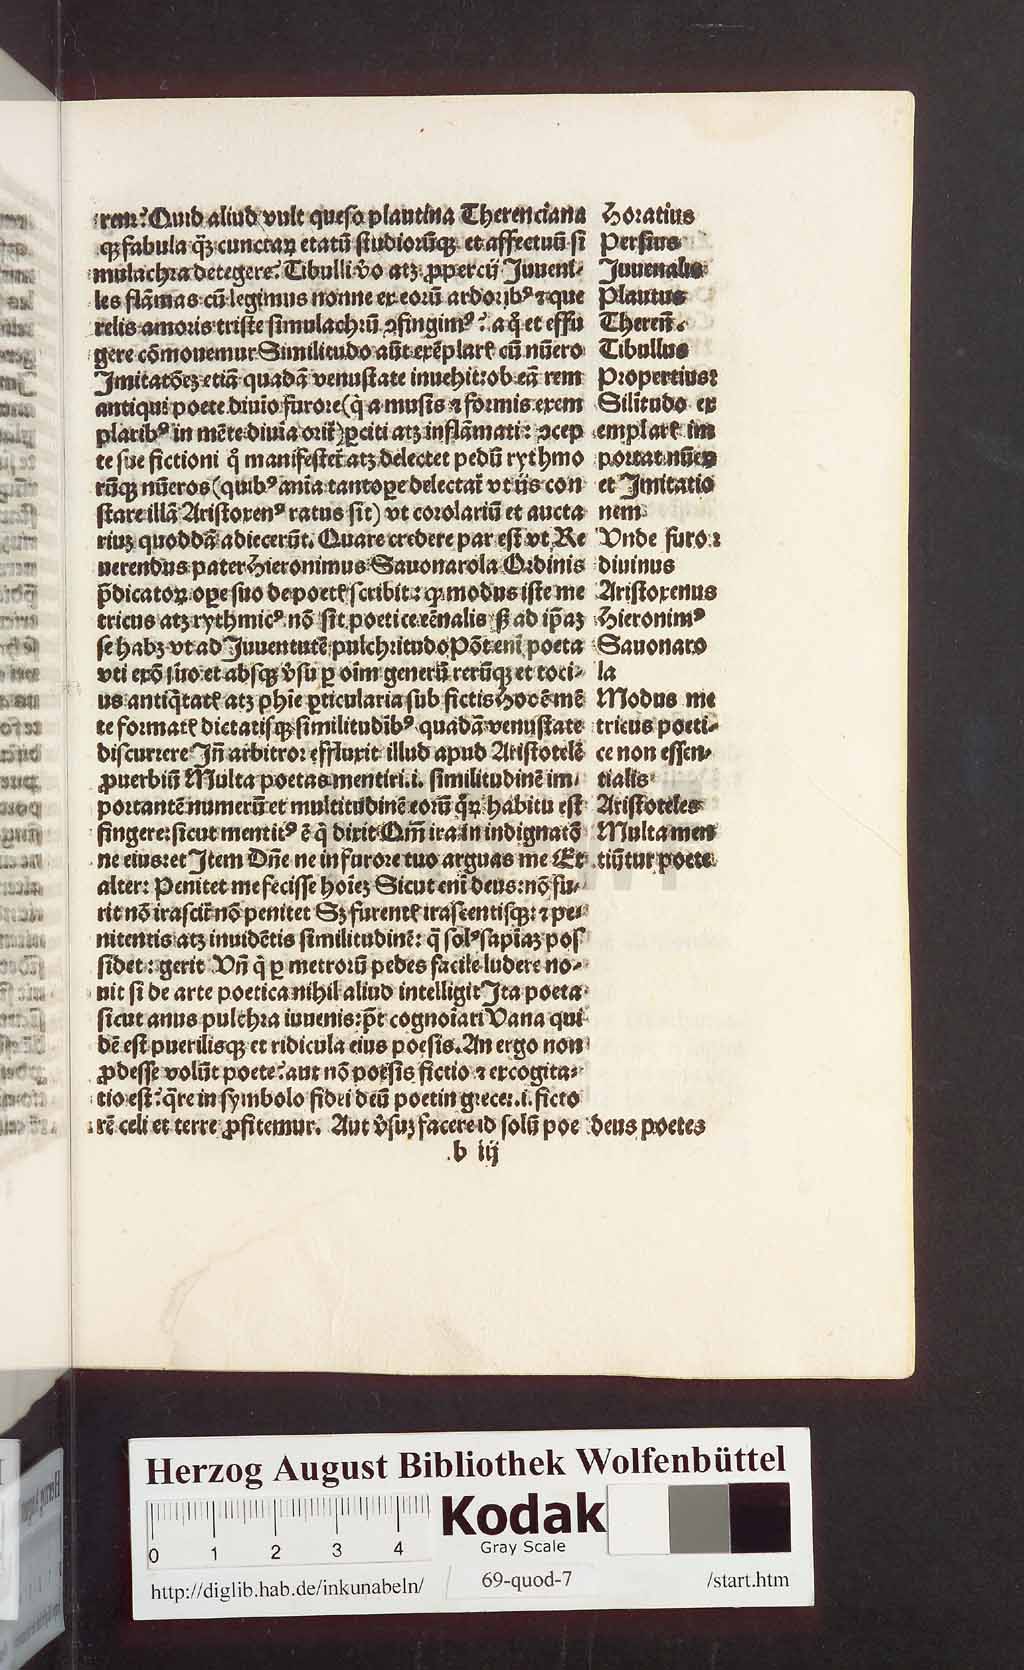 rem? Quid aliud vult queso plautina Therenciana
qꝫ fabula q̄ꝫ cunctaꝝ etatū studiorūqꝫ et affectuū si
mulachra detegere? Tibulli v̄o atꝫ ꝓpercij Juueni-
les flāmas cū legimus nonne ex eorū ardoribꝰ ⁊ que
relis amoris triste simulachrū ꝯfingimꝰ? a q̊ et effu
gere cōmouemur Similitudo aūt exēplarꝭ cū nūero
Jmitatōeꝫ etiā quadā venustate inuehit: ob eā rem
antiqui poete diuīo furore (q̇ a musis ⁊ formis exem
plaribꝰ in mēte diuīa orit̄) ꝑciti atꝫ inflāmati: ꝯcep
te sue fictioni q̊ manifestet̄ atꝫ delectet pedū rythmo
rūqꝫ nūeros (quibꝰ anīa tantoꝑe delectat̄ vt ijs con
stare illā Aristoxenꝰ ratus sit) vt corolariū et aucta
riuꝫ quoddā adiecerūt. Quare credere par est vt Re
uerendus pater Hieronimus Sauonarola Ordinis
p̄dicatoꝝ oꝑe suo de poetꝭ scribit: ꝙ modus iste me
tricus atꝫ rythmicꝰ nō sit poetice eēnalis sꝫ ad ip̄aꝫ
se habꝫ vt ad Juuentutē pulchritudo Pōt enī poeta
vti exō suo et absqꝫ v̄su ꝑ oīm generū rerūqꝫ et toti-
us antiq̇tatꝭ atꝫ phīe ꝑticularia sub fictis hoc ē mē
te formatꝭ dictatisqꝫ similitudībꝰ quadā venustate
discurrere Jn̄ arbitror effluxit illud apud Aristotelē
ꝓuerbiū Multa poetas mentiri .i. similitudinē im-
portantē numerū et multitudinē eorū q̄ꝝ habitu est
fingere: sicut mentitꝰ ē q̇ dixit Qm̄ ira in indignatō
ne eius: et Jtem Dn̄e ne in furore tuo arguas me Et
alter: Penitet me fecisse hoīeꝫ Sicut enī deus: nō fu-
rit nō irascit̄ nō penitet Sꝫ furentꝭ irascentisqꝫ: ⁊ pe-
nitentis atꝫ inuidētis similitudinē: q̇ solꝰ sapīaꝫ pos
sidet: gerit Vn̄ q̇ ꝑ metrorū pedes facile ludere no-
uit si de arte poetica nihil aliud intelligit Jta poeta
sicut anus pulchra iuuenis: p̄t cognoīari Vana qui
dē est puerilisqꝫ et ridicula eius poesis. An ergo non
ꝓdesse volūt poete? aut nō poesis fictio ⁊ excogita-
tio est? q̄re in symbolo fidei deū poetin grece: .i. ficto
rē celi et terre ꝓfitemur. Aut v̄suꝫ facere id solū poe
b iij
Horatius
Persius
Juuenalis
Plautus
Theren̄.
Tibullus
Propertius:
Sil̄itudo ex
emplarꝭ im
portat nūeꝝ
et Jmitatio
nem
Vnde furor
diuinus
Aristoxenus
Hieronimꝰ
Sauonaro
la
Modus me
tricus poeti-
ce non essen-
tialis
Aristoteles
Multa men
tiūtur poete
deus poetes
Herzog August Bibliothek Wolfenbüttel
0 1 2 3 4
Kodak
Gray Scale
http://diglib.hab.de/inkunabeln/ 69-quod-7 /start.htm